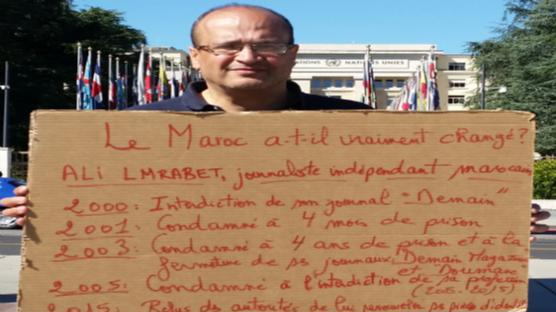 NATIONS UNIES
Le Maroc a-t-il vraiment changé?
ALI LMRABET, journaliste indépendant marocain
2000: Interdiction de son journal "Demain"
2001: Condamné à 4 mois de prison
2003: Condamné à 4 ans de prison et à la
fermeture de ses journaux, Demain Magazine
et Douman
2005: Condamné à l'interdiction de sa profession
(2005-2015)
2015: Refus des autorités de lui renouveler ses pièces d'identité